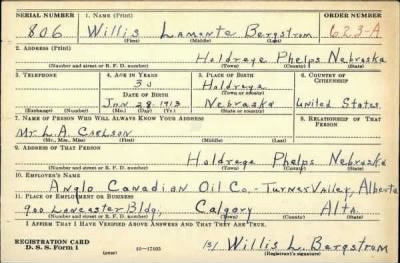 SERIAL NUMBER 1. NAME (Print) ORDER NUMBER
806 Willis Lamonte Bergstrom 623-A
(First) (Middle) (Last)
2. ADDRESS (Print)
Holdrege Phelps Nebraska
(Number and street or R. F. D. number) (Town) (County) (State)
3. TELEPHONE 4. AGE IN YEARS 5. PLACE OF BIRTH 6. COUNTRY OF CITIZENSHIP
Holdrege
(Town or county)
DATE OF BIRTH
Jan 28 1913 Nebraska United States
(Exchange) (Number) (Mo.) (Day) (Yr.) (State or country)
7. NAME OF PERSON WHO WILL ALWAYS KNOW YOUR ADDRESS 8. RELATIONSHIP OF THAT PERSON
Mr. L. A. Carlson
(Mr., Mrs., Miss) (First) (Middle) (Last)
9. ADDRESS OF THAT PERSON
Holdrege Phelps Nebraska
(Number and street or R. F. D. number) (Town) (County) (State)
10. EMPLOYER'S NAME
Anglo Canadian Oil Co. - Turner Valley, Alberta
11. PLACE OF EMPLOYMENT OR BUSINESS
900 Lancaster Bldg, Calgary Alta.
(Number and street or R. F. D. number) (Town) (County) (State)
I AFFIRM THAT I HAVE VERIFIED ABOVE ANSWERS AND THAT THEY ARE TRUE.
REGISTRATION CARD
D. S. S. Form 1 (over) 16-17105 /s/ Willis L. Bergstrom
(Registrant's signature)